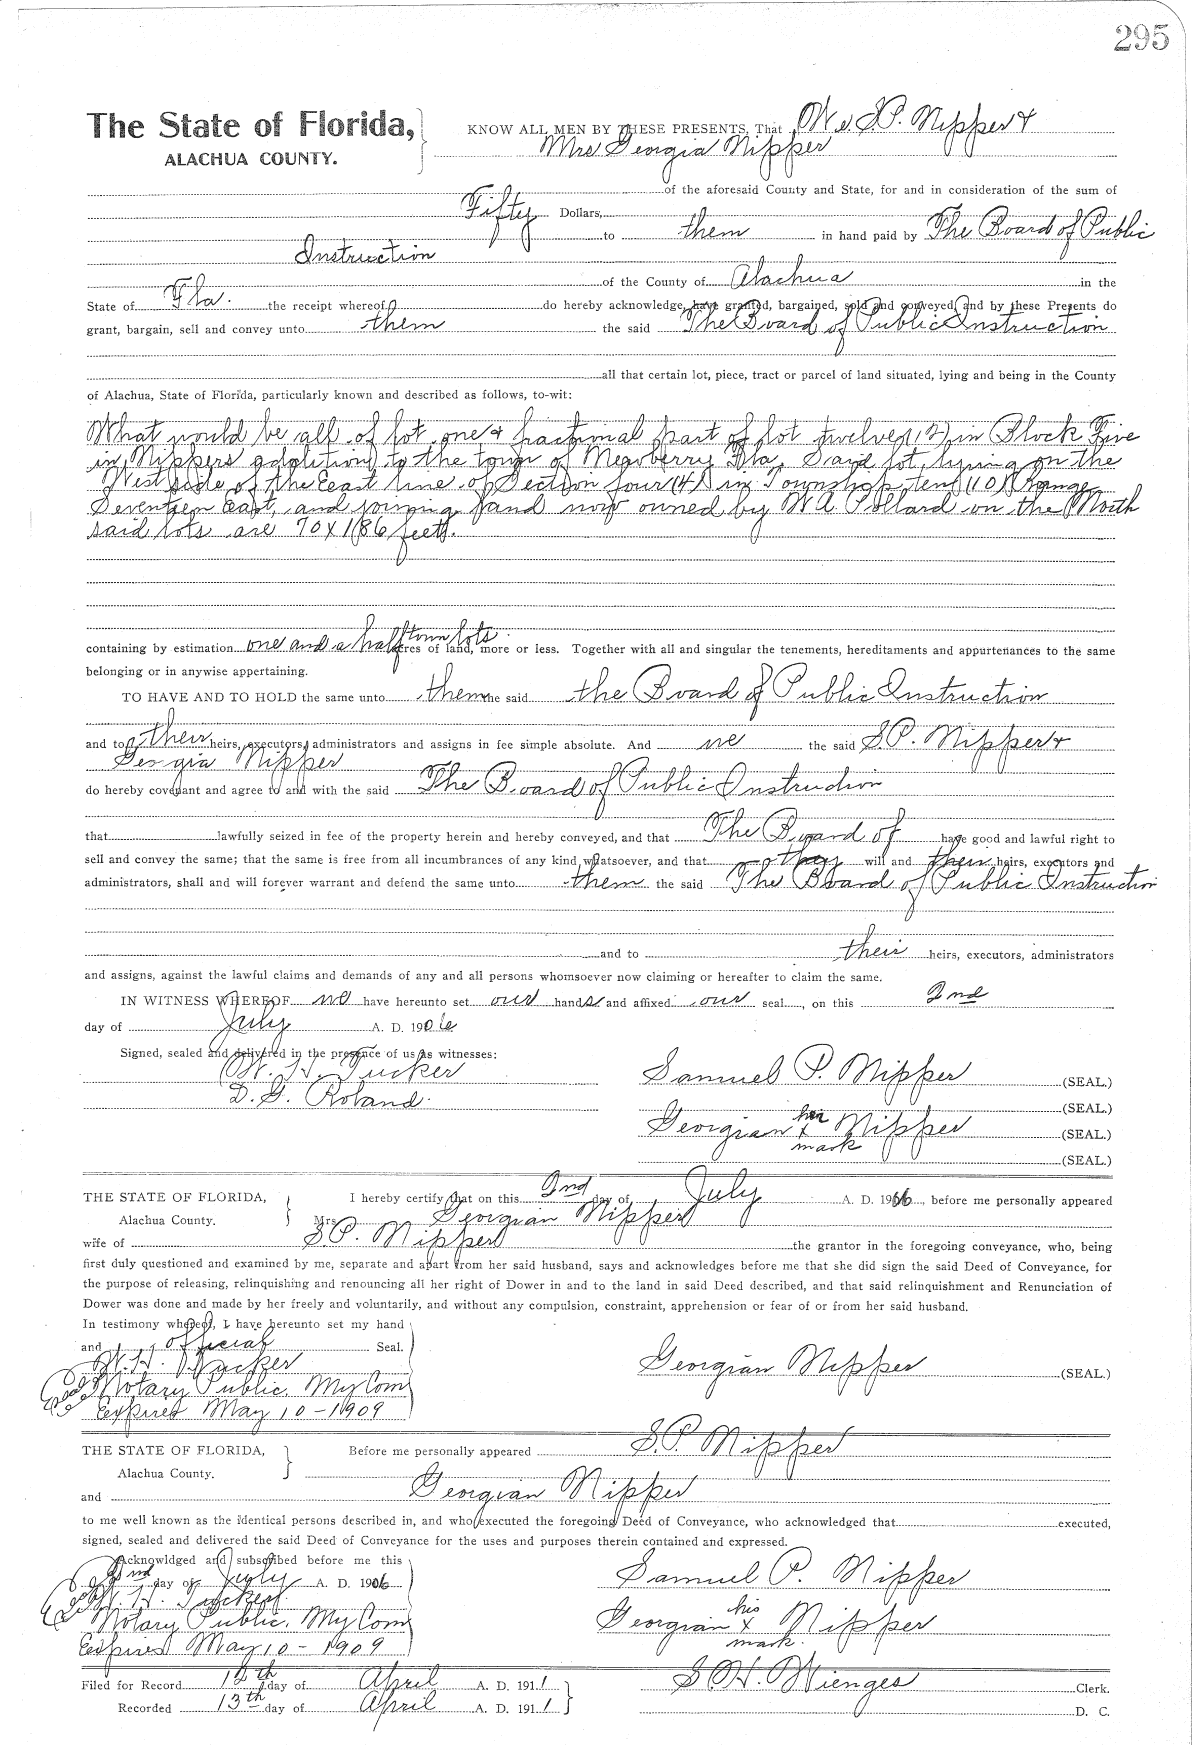 295
The State of Florida, KNOW ALL MEN BY THESE PRESENTS, That We S.P. Nipper &
ALACHUA COUNTY. Mrs Georgia Nipper
of the aforesaid County and State, for and in consideration of the sum of
Fifty Dollars,
to them in hand paid by The Board of Public
Instruction
of the County of Alachua in the
State of Fla. the receipt whereof do hereby acknowledge, have granted, bargained, sold and conveyed, and by these Presents do
grant, bargain, sell and convey unto them the said The Board of Public Instruction
all that certain lot, piece, tract or parcel of land situated, lying and being in the County
of Alachua, State of Florida, particularly known and described as follows, to-wit:
What would be all of lot one & fractional part of lot twelve (12) in Block Five
in Nippers addition to the town of Newberry Fla, Said lot lying on the
West side of the East line of Section four (4) in Township ten (10) Range
Seventeen East, and joining land now owned by W A Pollard on the North
said lots are 70 x 186 feet.
containing by estimation one and a half town lots acres of land, more or less. Together with all and singular the tenements, hereditaments and appurtenances to the same
belonging or in anywise appertaining.
TO HAVE AND TO HOLD the same unto them the said the Board of Public Instruction
and to their heirs, executors, administrators and assigns in fee simple absolute. And we the said S.P. Nipper &
Georgia Nipper
do hereby covenant and agree to and with the said The Board of Public Instruction
that lawfully seized in fee of the property herein and hereby conveyed, and that The Board of have good and lawful right to
sell and convey the same; that the same is free from all incumbrances of any kind whatsoever, and that they will and their heirs, executors and
administrators, shall and will forever warrant and defend the same unto them the said The Board of Public Instruction
and to their heirs, executors, administrators
and assigns, against the lawful claims and demands of any and all persons whomsoever now claiming or hereafter to claim the same.
IN WITNESS WHEREOF we have hereunto set our hands and affixed our seal, on this 2nd
day of July A. D. 1906
Signed, sealed and delivered in the presence of us as witnesses:
W. H. Tucker Samuel P. Nipper (SEAL.)
D. G. Roland. (SEAL.)
her
Georgian x Nipper (SEAL.)
mark
(SEAL.)
THE STATE OF FLORIDA, I hereby certify that on this 2nd day of July A. D. 1906, before me personally appeared
Alachua County. Mrs Georgian Nipper
wife of S.P. Nipper the grantor in the foregoing conveyance, who, being
first duly questioned and examined by me, separate and apart from her said husband, says and acknowledges before me that she did sign the said Deed of Conveyance, for
the purpose of releasing, relinquishing and renouncing all her right of Dower in and to the land in said Deed described, and that said relinquishment and Renunciation of
Dower was done and made by her freely and voluntarily, and without any compulsion, constraint, apprehension or fear of or from her said husband.
In testimony whereof, I have hereunto set my hand
and official Seal.
W. H. Tucker Georgian Nipper (SEAL.)
Seal Notary Public. My Com
Expires May 10 - 1909
THE STATE OF FLORIDA, Before me personally appeared S.P. Nipper
Alachua County.
and Georgian Nipper
to me well known as the identical persons described in, and who executed the foregoing Deed of Conveyance, who acknowledged that executed,
signed, sealed and delivered the said Deed of Conveyance for the uses and purposes therein contained and expressed.
Acknowldged and subscribed before me this
2nd day of July A. D. 1906 Samuel P. Nipper
Seal W. H. Tucker
his
Notary Public, My Com Georgian x Nipper
mark.
Expires May 10 - 1909
Filed for Record 12th day of April A. D. 1911 S H. Wienges Clerk.
Recorded 13th day of April A. D. 1911 D. C.